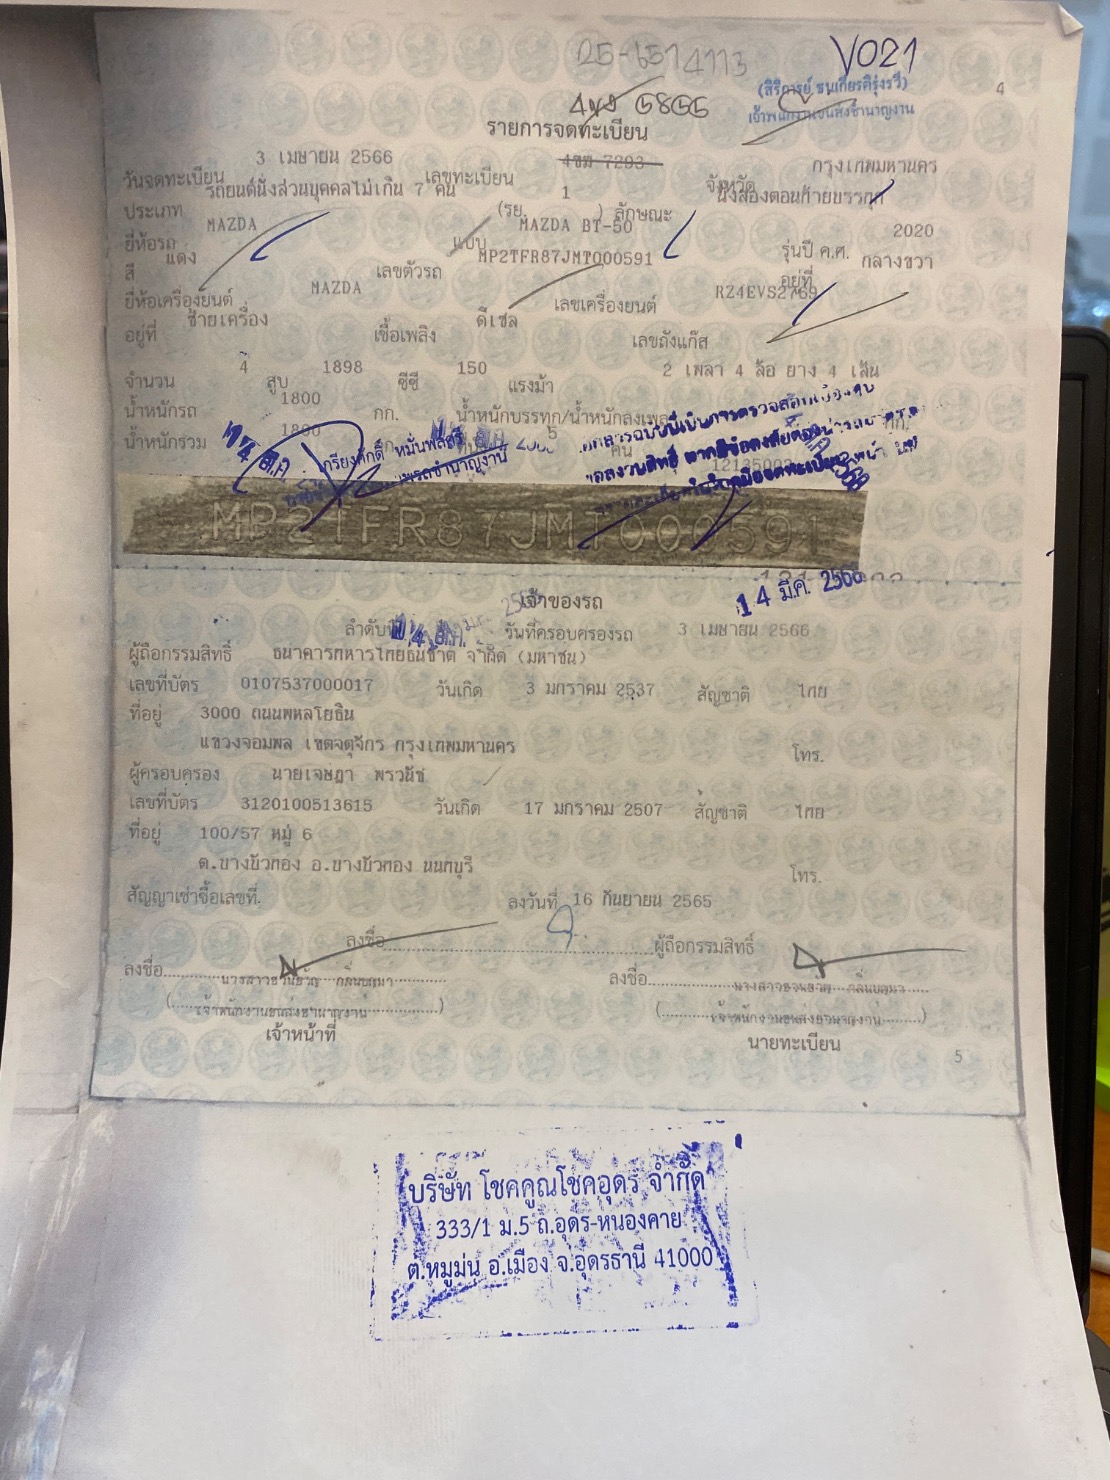 25-6514113
V021
(สิริการย์ ธนเกียรติรุ่งรวี)
เจ้าพนักงานขนส่งชำนาญงาน
4
รายการจดทะเบียน
วันจดทะเบียน 3 เมษายน 2566 เลขทะเบียน 4ขม 7293 จังหวัด กรุงเทพมหานคร
ประเภท รถยนต์นั่งส่วนบุคคลไม่เกิน 7 คน (รย. 1 ) ลักษณะ นั่งสองตอนท้ายบรรทุก
ยี่ห้อรถ MAZDA แบบ MAZDA BT-50 รุ่นปี ค.ศ. 2020
สี แดง เลขตัวรถ MP2TFR87JMT000591 อยู่ที่ กลางขวา
ยี่ห้อเครื่องยนต์ MAZDA เลขเครื่องยนต์ RZ4EVS2769
อยู่ที่ ซ้ายเครื่อง เชื้อเพลิง ดีเซล เลขถังแก๊ส
จำนวน 4 สูบ 1898 ซีซี 150 แรงม้า 2 เพลา 4 ล้อ ยาง 4 เส้น
น้ำหนักรถ 1800 กก. น้ำหนักบรรทุก/น้ำหนักลงเพลา กก.
น้ำหนักรวม 1800 5 คน
MP2TFR87JMT000591
14 มี.ค. 2568
เจ้าของรถ
ลำดับที่ วันที่ครอบครองรถ 3 เมษายน 2566
ผู้ถือกรรมสิทธิ์ ธนาคารทหารไทยธนชาต จำกัด (มหาชน)
เลขที่บัตร 0107537000017 วันเกิด 3 มกราคม 2537 สัญชาติ ไทย
ที่อยู่ 3000 ถนนพหลโยธิน
แขวงจอมพล เขตจตุจักร กรุงเทพมหานคร โทร.
ผู้ครอบครอง นายเจษฎา พรวนิช
เลขที่บัตร 3120100513615 วันเกิด 17 มกราคม 2507 สัญชาติ ไทย
ที่อยู่ 100/57 หมู่ 6
ต.บางบัวทอง อ.บางบัวทอง นนทบุรี โทร.
สัญญาเช่าซื้อเลขที่. ลงวันที่ 16 กันยายน 2565
ลงชื่อ ผู้ถือกรรมสิทธิ์
ลงชื่อ ลงชื่อ
(เจ้าพนักงานขนส่งชำนาญงาน) (เจ้าพนักงานขนส่งชำนาญงาน)
เจ้าหน้าที่ นายทะเบียน
5
บริษัท โชคคูณโชคอุดร จำกัด
333/1 ม.5 ถ.อุดร-หนองคาย
ต.หมูม่น อ.เมือง จ.อุดรธานี 41000